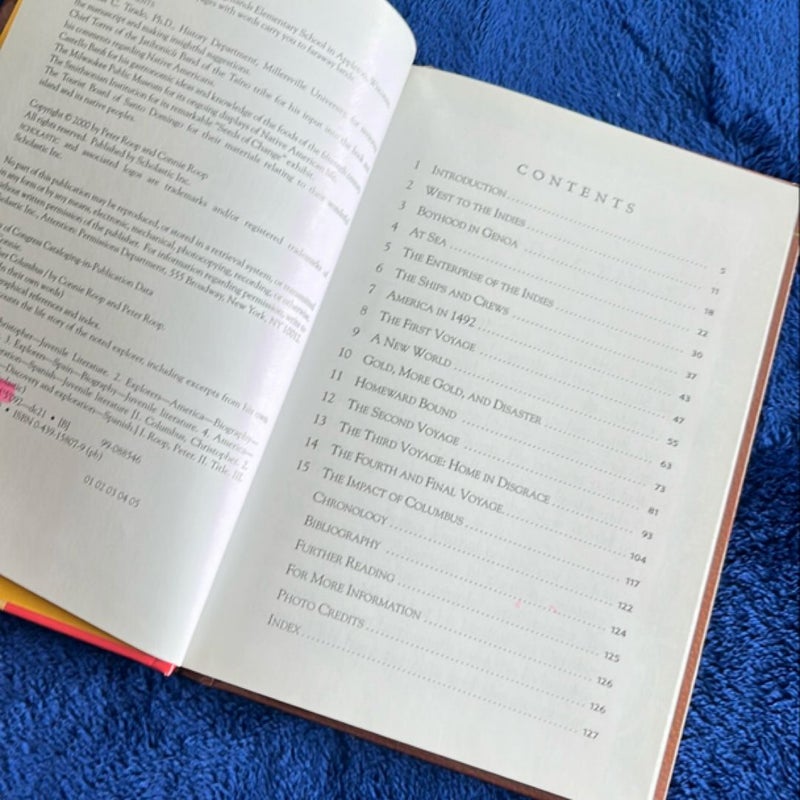 Elementary School in Appleton, Wisconsin,
with words carry you to faraway lands.
C. Tirado, Ph.D., History Department, Millersville University, for
the manuscript and making insightful suggestions.
Chief Torres of the Jatibonicù Band of the Taíno tribe for his input into the book and
his comments regarding Native Americans.
Castello Banfi for his gastronomic ideas and knowledge of the foods of the fifteenth century.
The Milwaukee Public Museum for its ongoing displays of Native American life.
The Smithsonian Institution for its remarkable "Seeds of Change" exhibit.
The Tourist Board of Santo Domingo for their materials relating to their
island and its native peoples.
Copyright © 2000 by Peter Roop and Connie Roop
All rights reserved. Published by Scholastic Inc.
SCHOLASTIC and associated logos are trademarks and/or registered trademarks of
Scholastic Inc.
No part of this publication may be reproduced, or stored in a retrieval system, or transmitted
in any form or by any means, electronic, mechanical, photocopying, recording, or otherwise,
without written permission of the publisher. For information regarding permission, write to
Scholastic Inc., Attention: Permissions Department, 555 Broadway, New York, NY 10012.
of Congress Cataloging-in-Publication Data
Connie.
Columbus / by Connie Roop and Peter Roop.
their own words)
graphical references and index.
the life story of the noted explorer, including excerpts from his own
Christopher—Juvenile Literature. 2. Explorers—America—Biography—
3. Explorers—Spain—Biography—Juvenile literature. 4. America—
Spanish—Juvenile literature [1. Columbus, Christopher. 2.
—Discovery and exploration—Spanish.] I. Roop, Peter. II. Title. III.
dc21 • [B] 99-088546
• ISBN 0-439-15807-9 (pb)
01 02 03 04 05
CONTENTS
1 INTRODUCTION 5
2 WEST TO THE INDIES 11
3 BOYHOOD IN GENOA 18
4 AT SEA 22
5 THE ENTERPRISE OF THE INDIES 30
6 THE SHIPS AND CREWS 37
7 AMERICA IN 1492 43
8 THE FIRST VOYAGE 47
9 A NEW WORLD 55
10 GOLD, MORE GOLD, AND DISASTER 63
11 HOMEWARD BOUND 73
12 THE SECOND VOYAGE 81
13 THE THIRD VOYAGE: HOME IN DISGRACE 93
14 THE FOURTH AND FINAL VOYAGE 104
15 THE IMPACT OF COLUMBUS 117
CHRONOLOGY 122
BIBLIOGRAPHY 124
FURTHER READING 125
FOR MORE INFORMATION 126
PHOTO CREDITS 126
INDEX 127